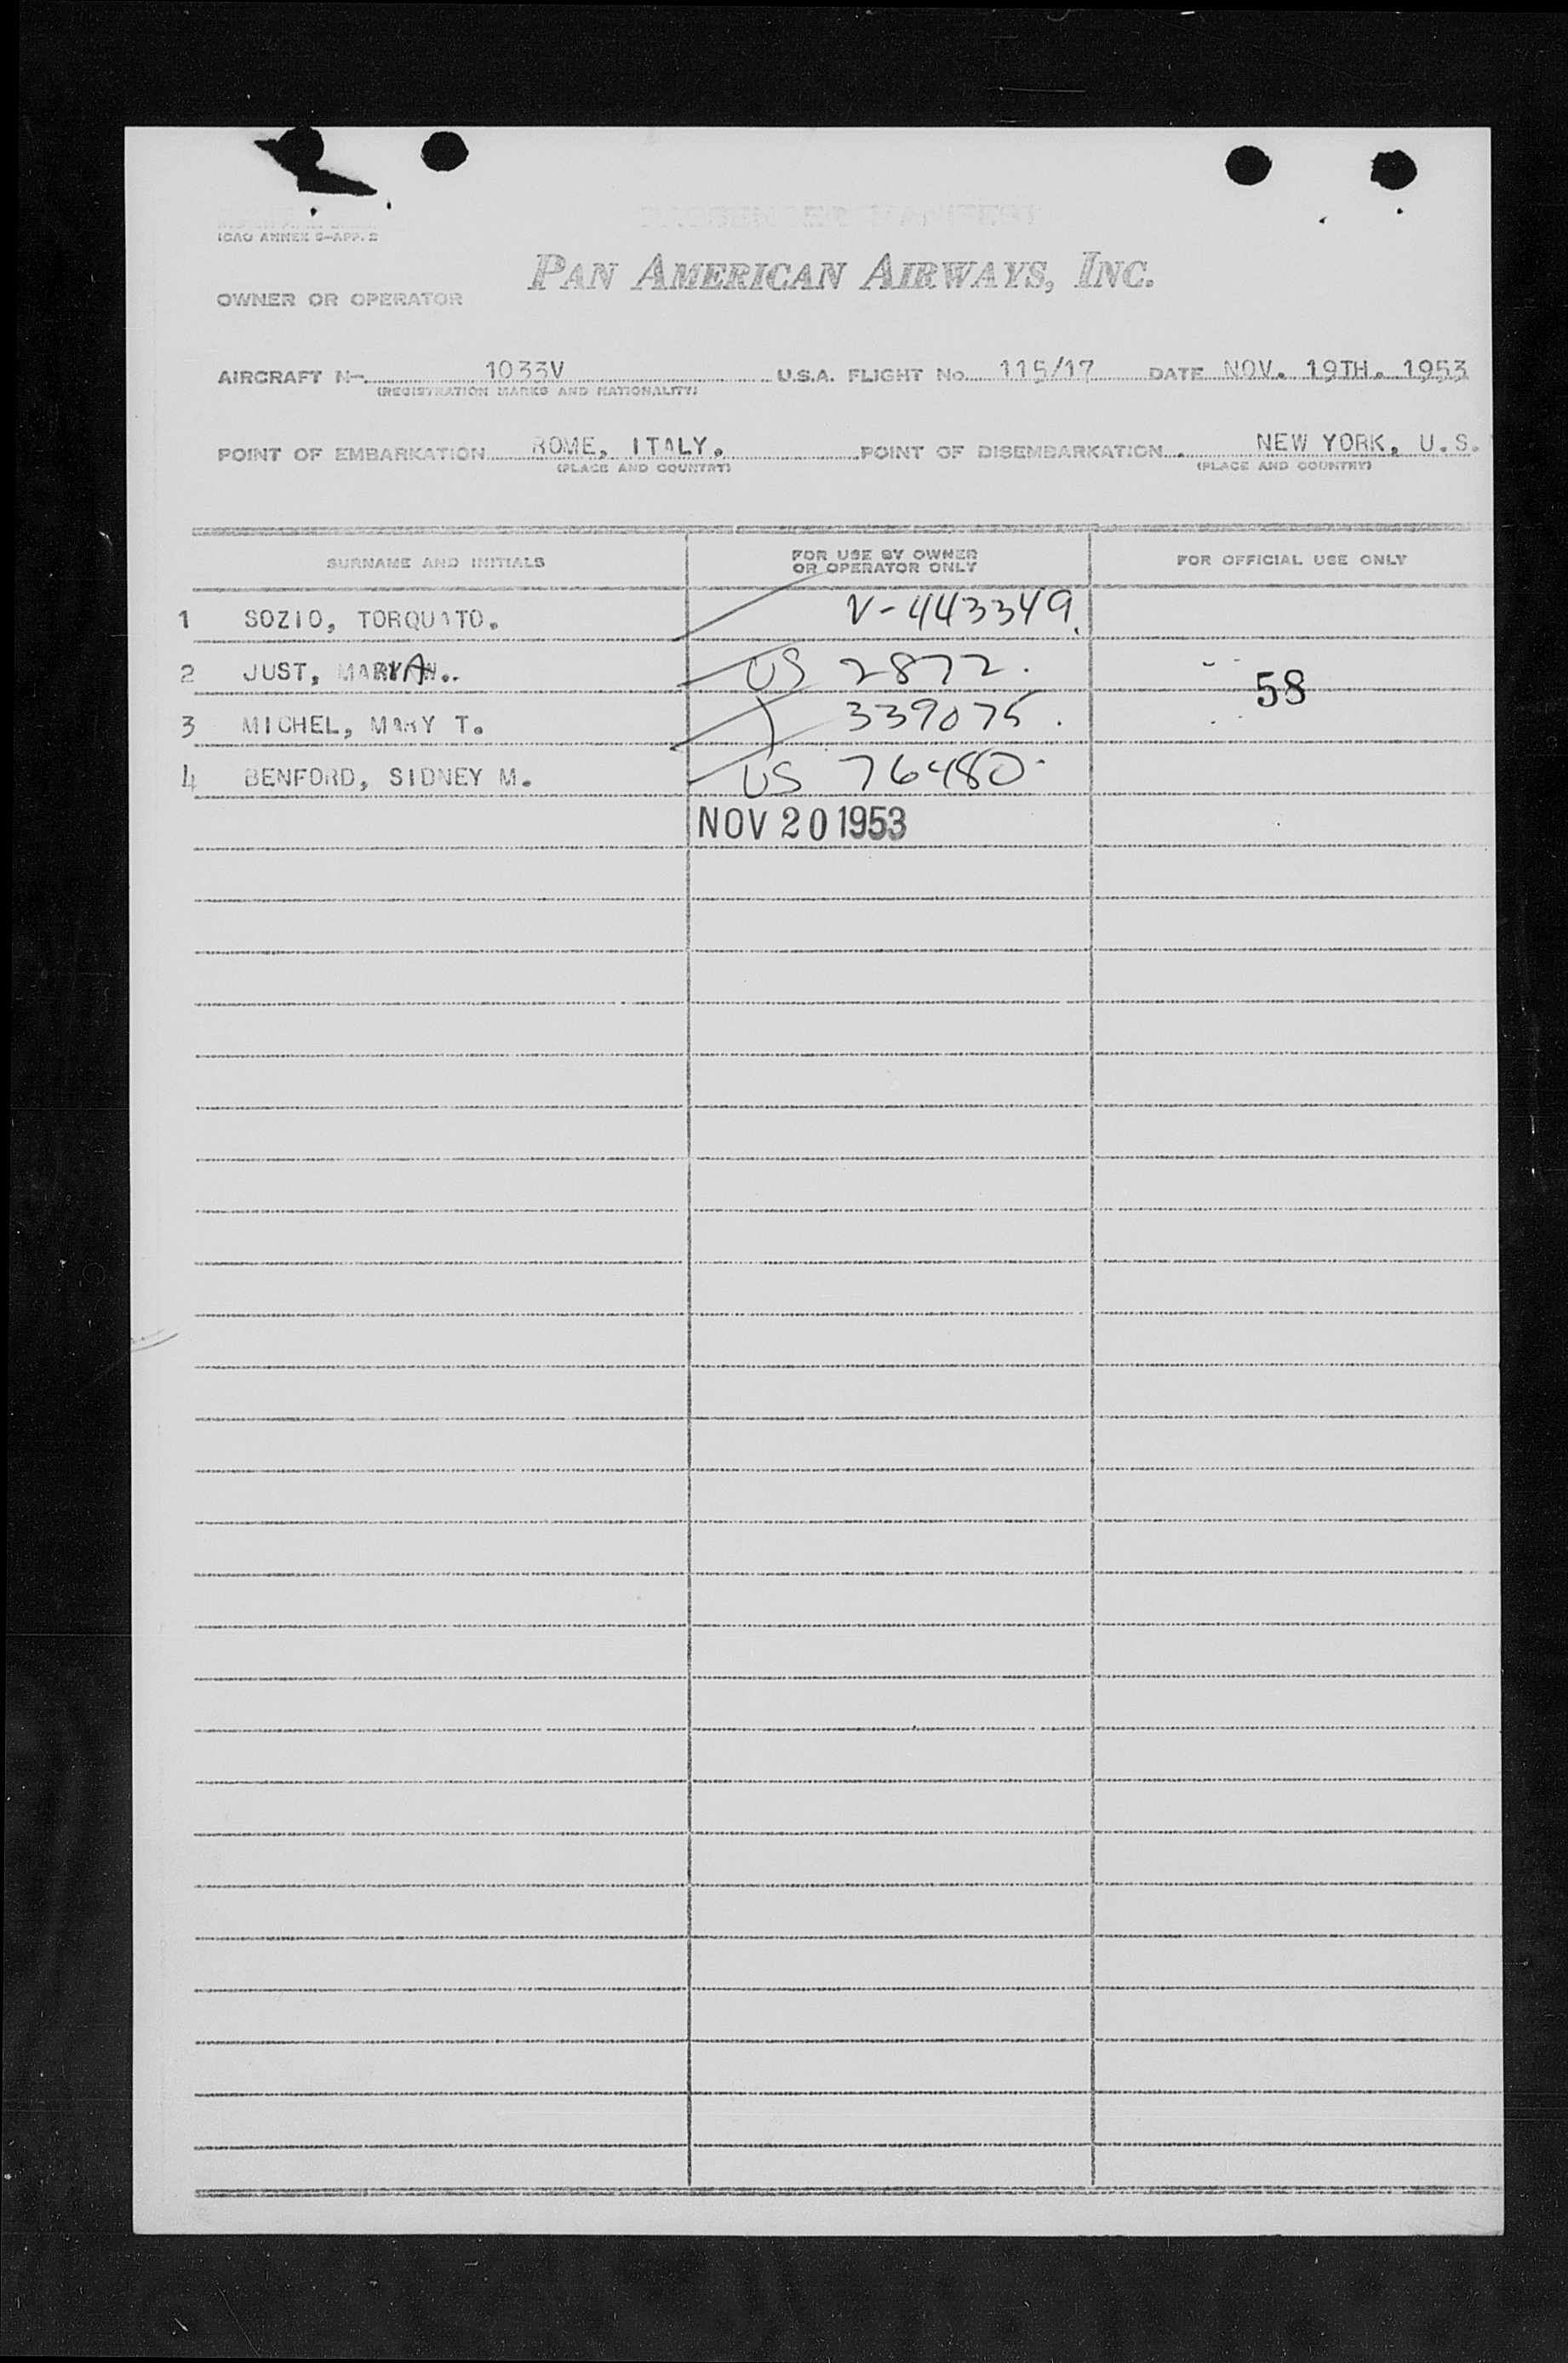 PASSENGER MANIFEST
ICAO ANNEX 9-APP. 2
PAN AMERICAN AIRWAYS, INC.
OWNER OR OPERATOR
AIRCRAFT N- 1033V U.S.A. FLIGHT No. 115/17 DATE NOV. 19TH. 1953
(REGISTRATION MARKS AND NATIONALITY)
POINT OF EMBARKATION ROME, ITALY. POINT OF DISEMBARKATION NEW YORK, U.S.
(PLACE AND COUNTRY) (PLACE AND COUNTRY)
SURNAME AND INITIALS FOR USE BY OWNER OR OPERATOR ONLY FOR OFFICIAL USE ONLY
1 SOZIO, TORQUATO. V-443349.
2 JUST, MARY A. US 2872.
58
3 MICHEL, MARY T. 339075.
4 BENFORD, SIDNEY M. US 76480
NOV 20 1953